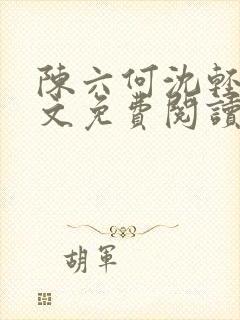 陳六何沈輕
文免費閱讀
胡軍